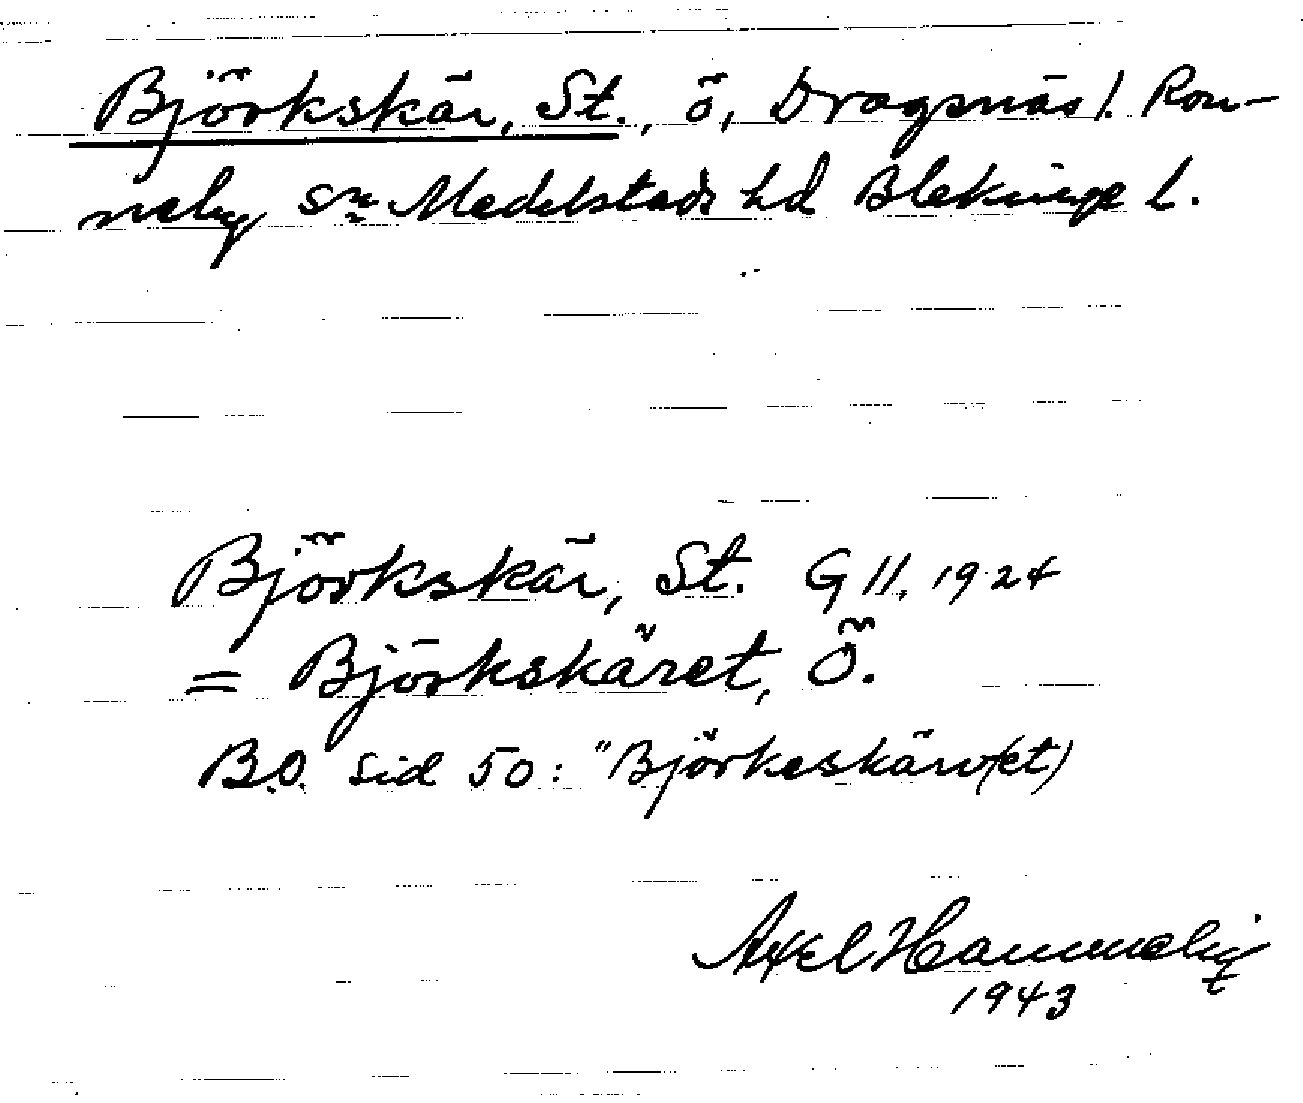 Björkskär, St., ö, Dragsnäs l. Ron-
neby sn Medelstads hd Blekinge l.
Björkskär, St. G 11, 1924
= Björkskäret, Ö.
B.O. Sid 50: "Björkeskärv(et)
Axel Hammelig
1943